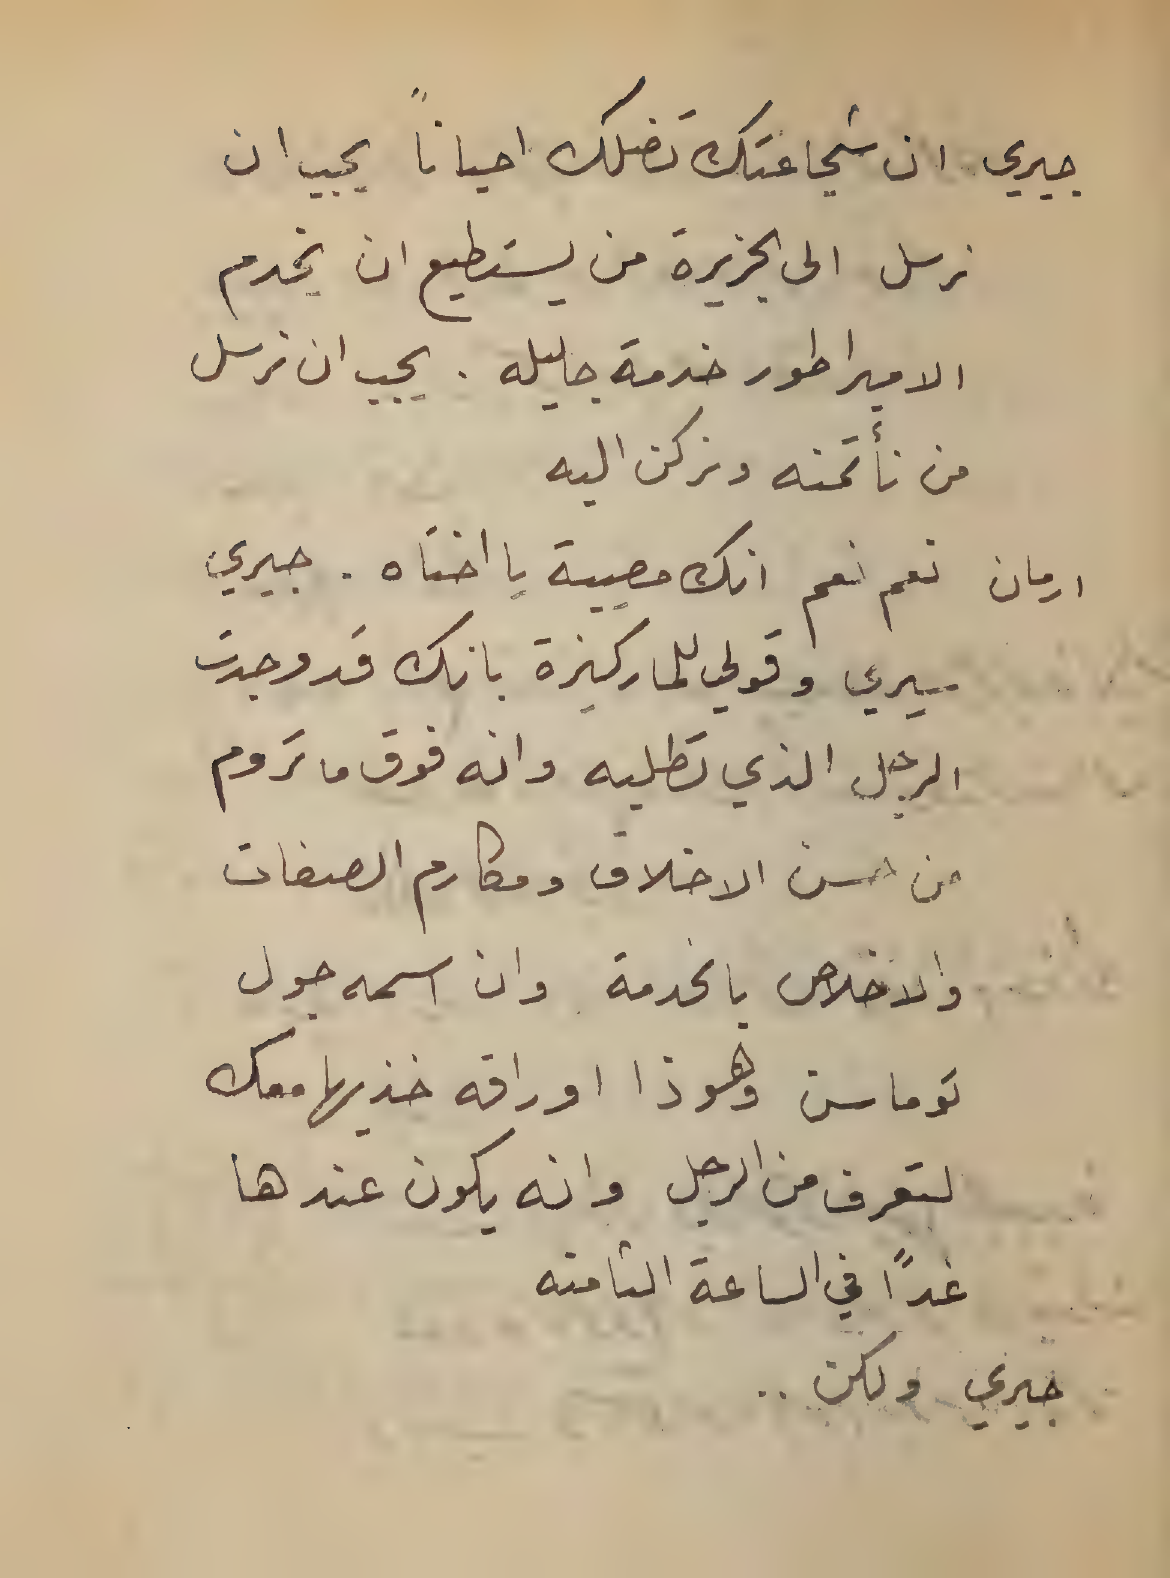 جيري ان شجاعتك تضلك احياناً يجب ان
نرسل الى الجزيرة من يستطيع ان يخدم
الامبراطور خدمة جليله . يجب ان نرسل
من نأتمنه ونركن اليه
ارمان نعم نعم انك مصيبة يا اختاه . جيري
سيري وقولي للماركيزة بانك قد وجدت
الرجل الذي تطلبه وانه فوق ما تروم
من حسن الاخلاق ومكارم الصفات
والاخلاص بالخدمة وان اسمه جول
توماسن وهوذا اوراقه خذيها معك
لتعرف من الرجل وانه يكون عندها
غداً في الساعة الثامنه
جيري ولكن ..